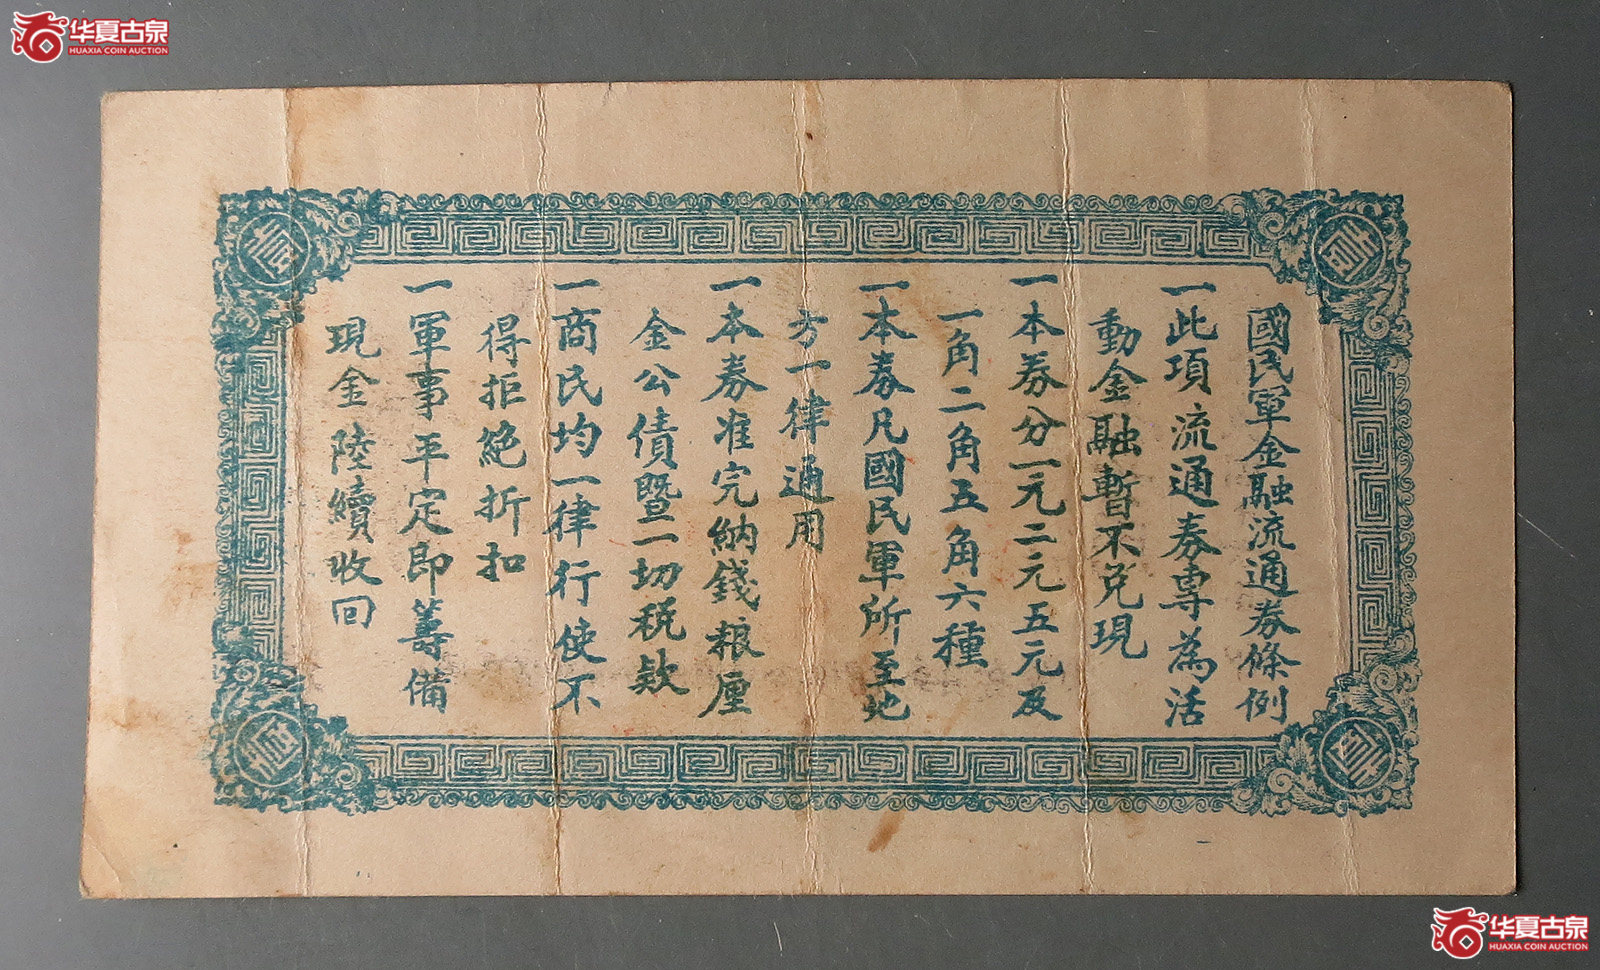 華夏古泉
HUAXIA COIN AUCTION
國民軍金融流通券條例
一此項流通券專為活
動金融暫不兌現
一本券分一元二元五元及
一角二角五角六種
一本券凡國民軍所至地
方一律通用
一本券准完納錢粮厘
金公債暨一切税款
一商民均一律行使不
得拒絶折扣
一軍事平定即籌備
現金陸續收回
壹
壹
壹
壹
华夏古泉
HUAXIA COIN AUCTION